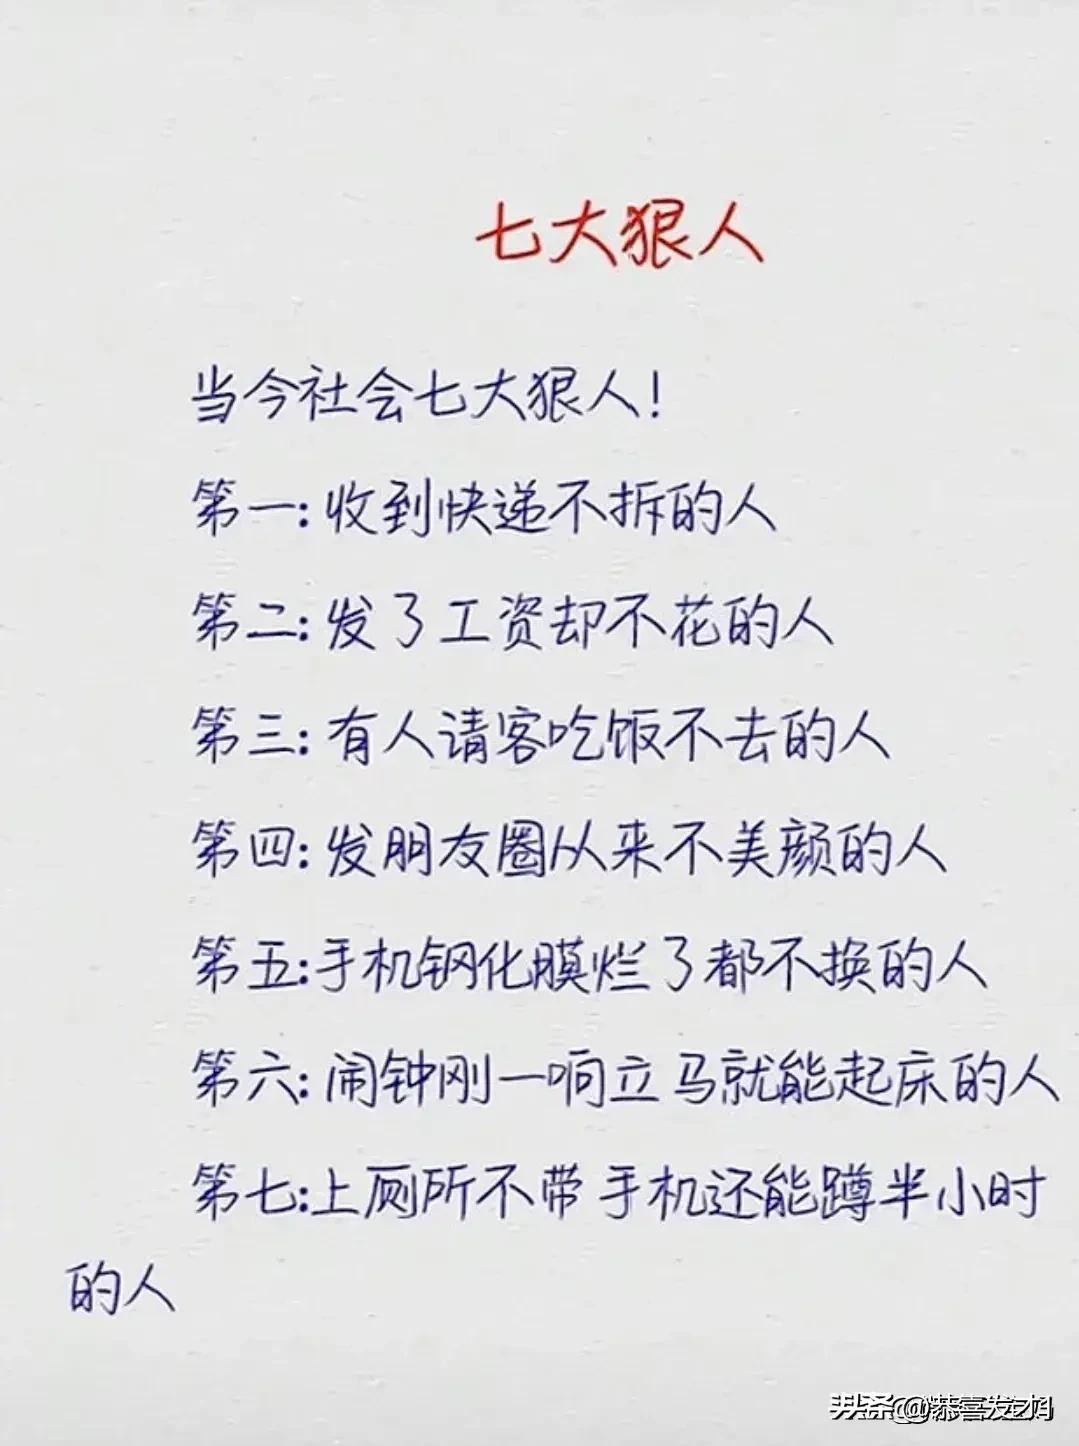 七大狠人
当今社会七大狠人!
第一:收到快递不拆的人
第二:发了工资却不花的人
第三:有人请客吃饭不去的人
第四:发朋友圈从来不美颜的人
第五:手机钢化膜烂了都不换的人
第六:闹钟刚一响立马就能起床的人
第七:上厕所不带手机还能蹲半小时
的人
头条@恭喜发